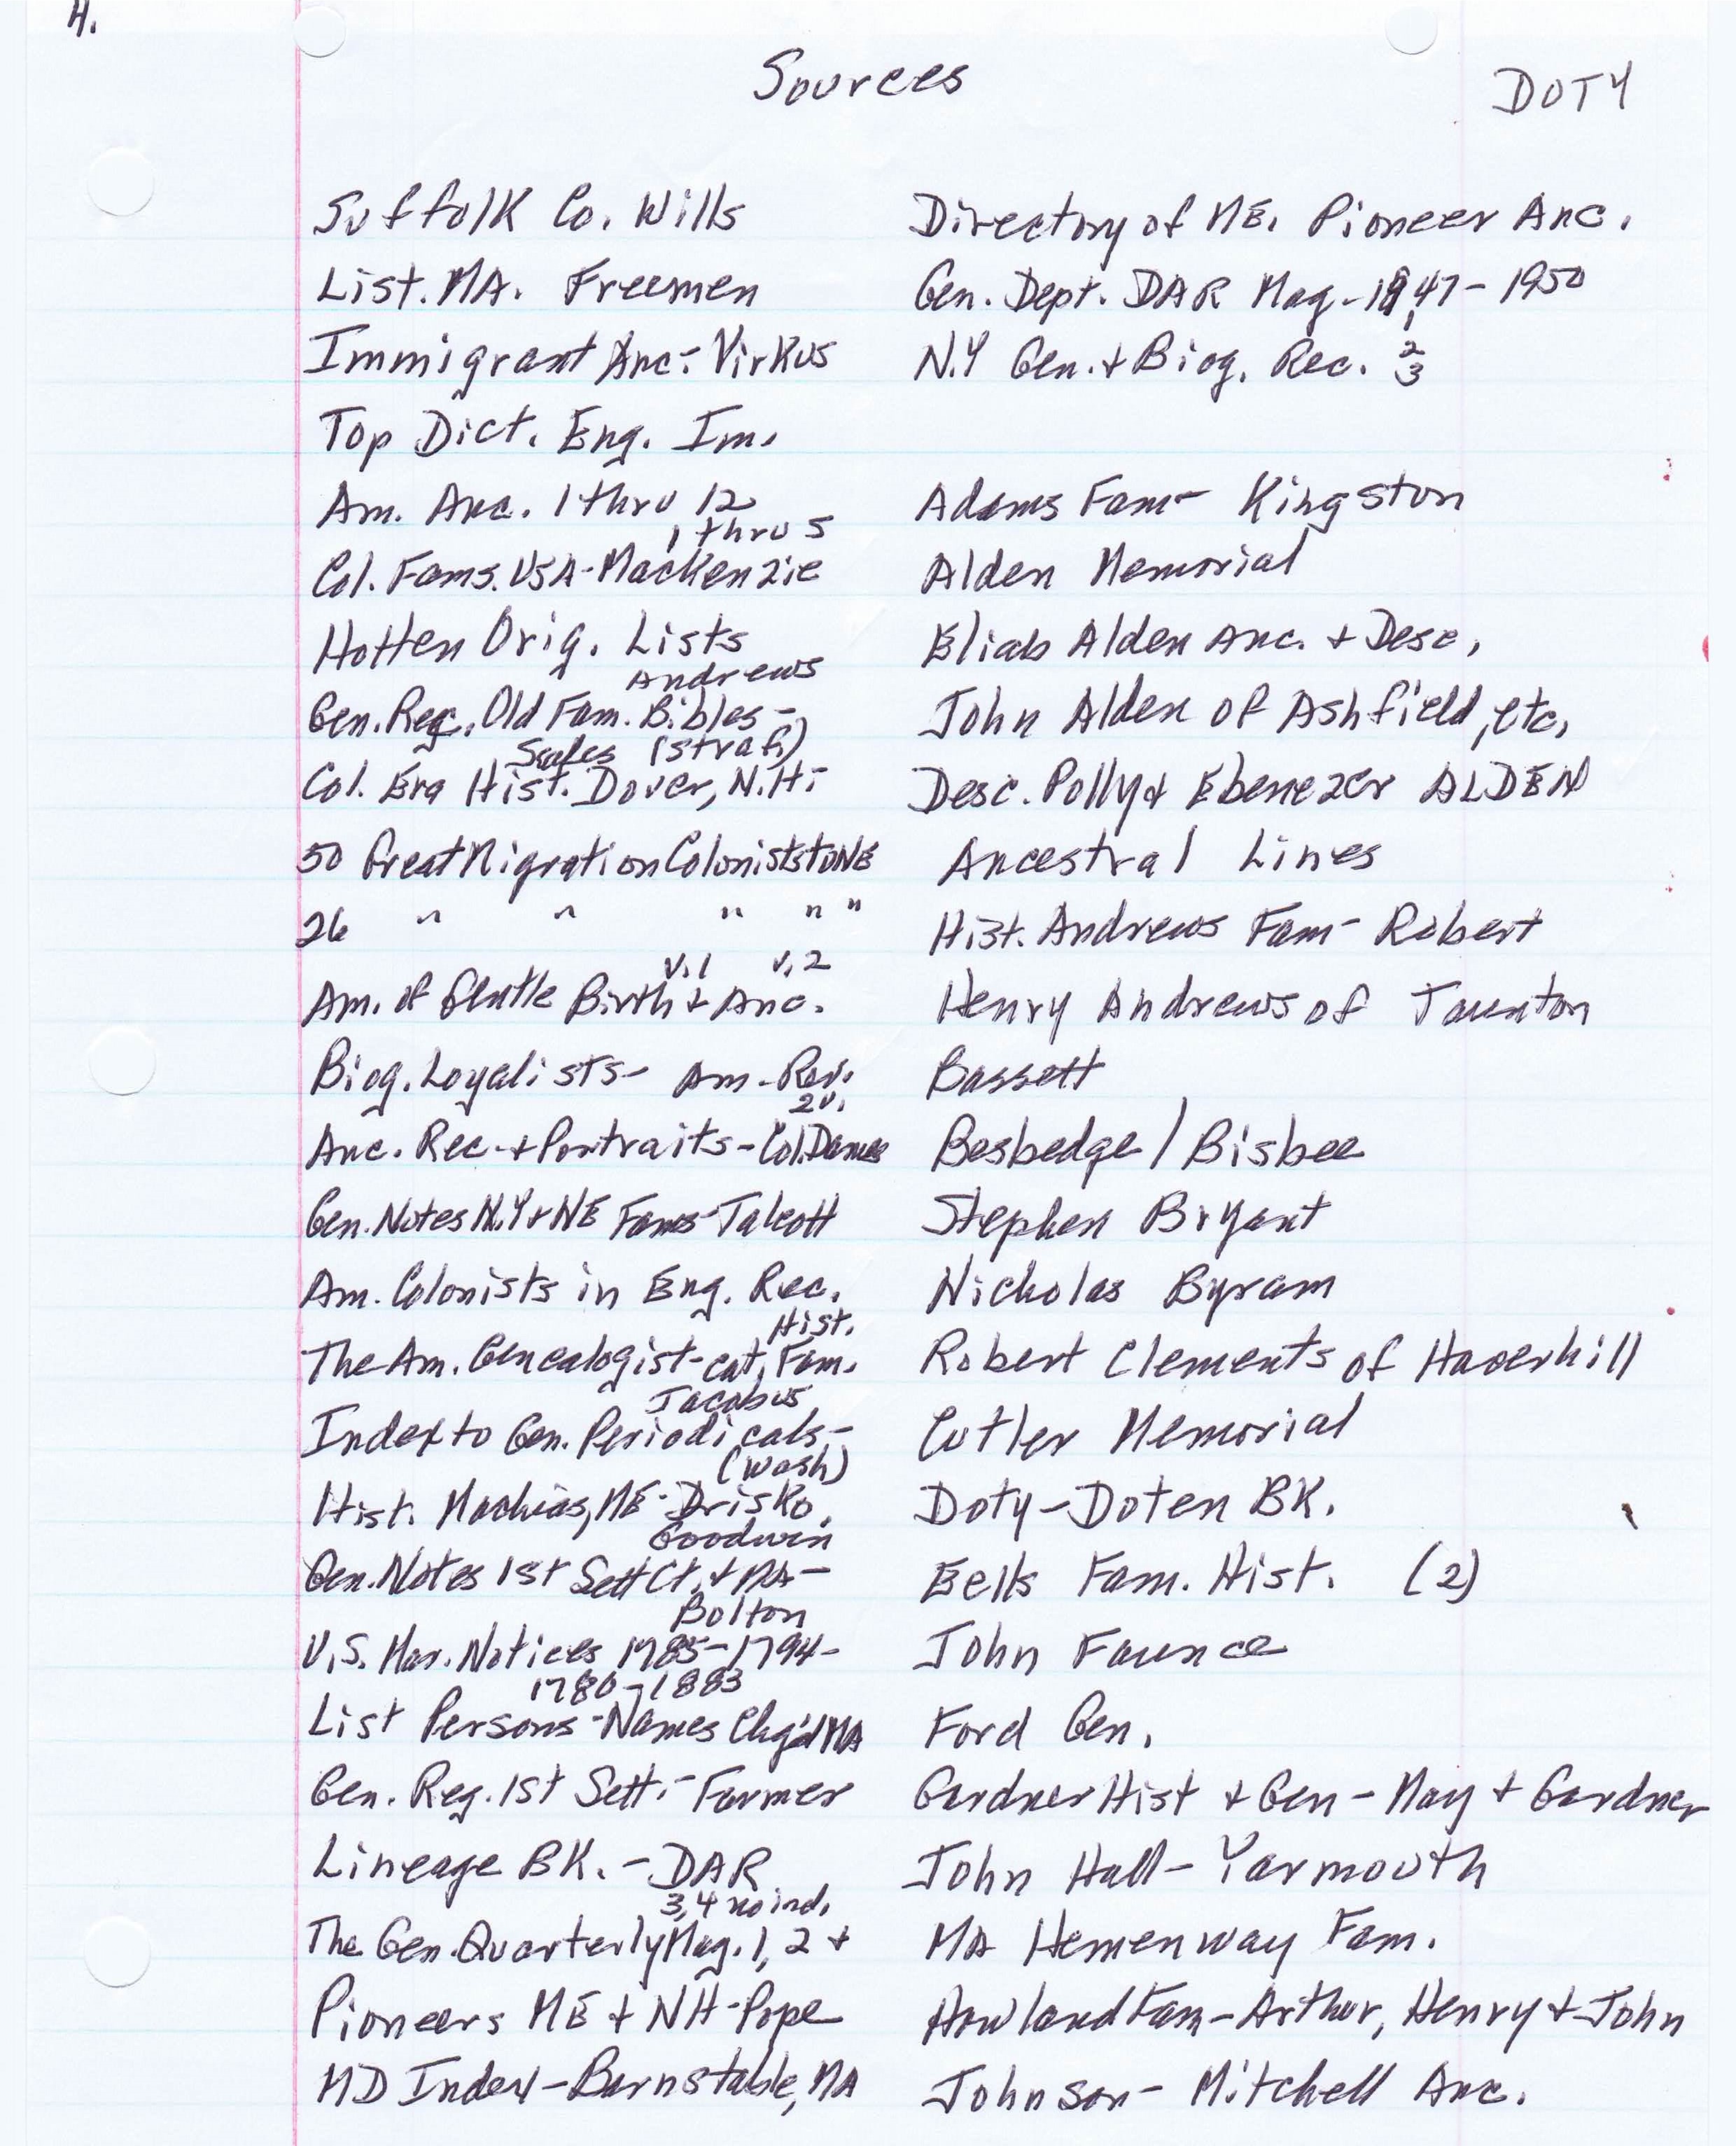 4.
Sources
DOTY
Suffolk Co. Wills
List. MA. Freemen
Immigrant Anc - Virkus
Top Dict. Eng. Im.
Am. Anc. 1 thru 12
1 thru 5
Col. Fams. USA - MacKenzie
Hotten Orig. Lists
Andrews
Gen. Rec. Old Fam. Bibles -
Scales (Straf.)
Col. Era Hist. Dover, N.H. -
50 Great Migration Colonists to NE
26 " " " " "
v.1 v.2
Am. of Gentle Birth & Anc.
Biog. Loyalists - Am. Rev.
2v.
Anc. Rec. + Portraits - Col. Dames
Gen. Notes N.Y + NE Fams - Talcott
Am. Colonists in Eng. Rec.
Hist.
The Am. Genealogist - cat. Fam.
Jacobus
Index to Gen. Periodicals -
(Wash)
Hist. Machias, ME - Drisko
Goodwin
Gen. Notes 1st Sett Ct. + MA -
Bolton
U.S. Mar. Notices 1785-1794-
1780-1883
List Persons - Names Chg'd MA
Gen. Reg. 1st Sett. - Farmer
Lineage BK. - DAR
3, 4 no ind.
The Gen. Quarterly Mag. 1, 2 +
Pioneers ME + NH - Pope
MD Index - Barnstable, MA
Directory of ME. Pioneer Anc.
Gen. Dept. DAR Mag - 1947 - 1950
1
N.Y Gen. + Biog. Rec. 2
3
Adams Fam - Kingston
Alden Memorial
Eliab Alden Anc. + Desc.
John Alden of Ashfield, etc.
Desc. Polly & Ebenezer ALDEN
Ancestral Lines
Hist. Andrews Fam - Robert
Henry Andrews of Taunton
Bassett
Besbedge / Bisbee
Stephen Bryant
Nicholas Byram
Robert Clements of Haverhill
Cutler Memorial
Doty - Doten BK.
Eells Fam. Hist. (2)
John Faunce
Ford Gen.
Gardner Hist + Gen - May + Gardner
John Hall - Yarmouth
MA Hemenway Fam.
Howland Fam - Arthur, Henry + John
Johnson - Mitchell Anc.